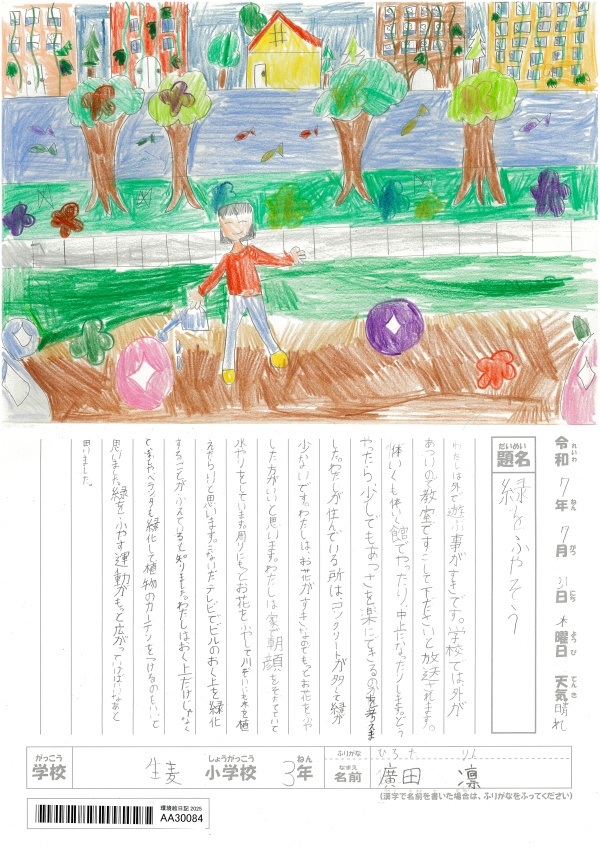 令和 7年 7月 31日 木曜日 天気 晴れ
れいわ ねん がつ にち ようび てんき
だいめい
題名
緑をふやそう
わたしは外で遊ぶ事がすきです。学校では外が
あついので教室ですごして下ださいと放送されます。
体いくも体いく館でやったり、中止になったりします。どう
やったら、少しでもあつさを楽にできるのかを考えま
した。わたしが住んでいる所は、コンクリートが多くて緑が
少ないです。わたしは、お花がすきなのでもっとお花をふや
した方がいいと思います。わたしは家で朝顔をそだてていて
水やりをしています。周りにもっとお花をふやして川ぞいにも木を植
えたらいいと思います。こないだテレビでビルのおく上を緑化
することがふえていると知りました。わたしはおく上だけじゃなく
て、まどやベランダも緑化して植物のカーテンをつけるのもいいと
思いました。緑をふやす運動がもっと広がっていけばいいなあと
思いました。
がっこう
学校
生麦
しょうがっこう
小学校
3年
ねん
ふりがな
ひろた りん
なまえ
名前
廣田 凛
(漢字で名前を書いた場合は、ふりがなをふってください)
環境絵日記 2025
AA30084